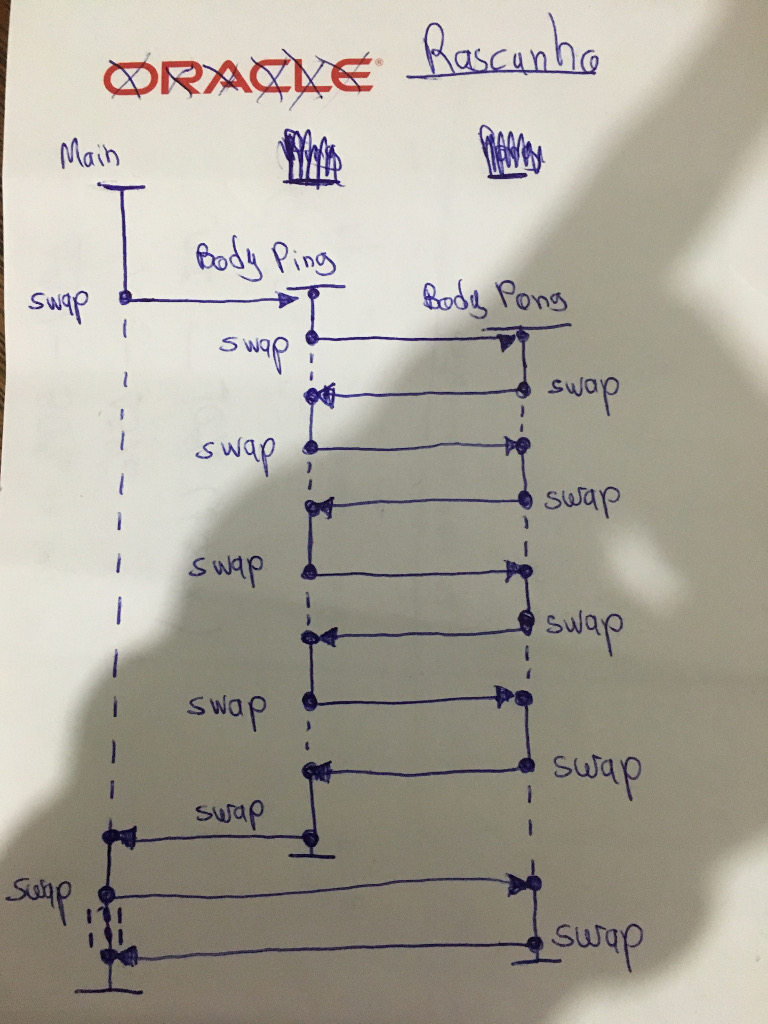 ORACLE®
Rascunho
Main
Body Ping
swap
Body Pong
swap
swap
swap
swap
swap
swap
swap
swap
swap
swap
swap
swap